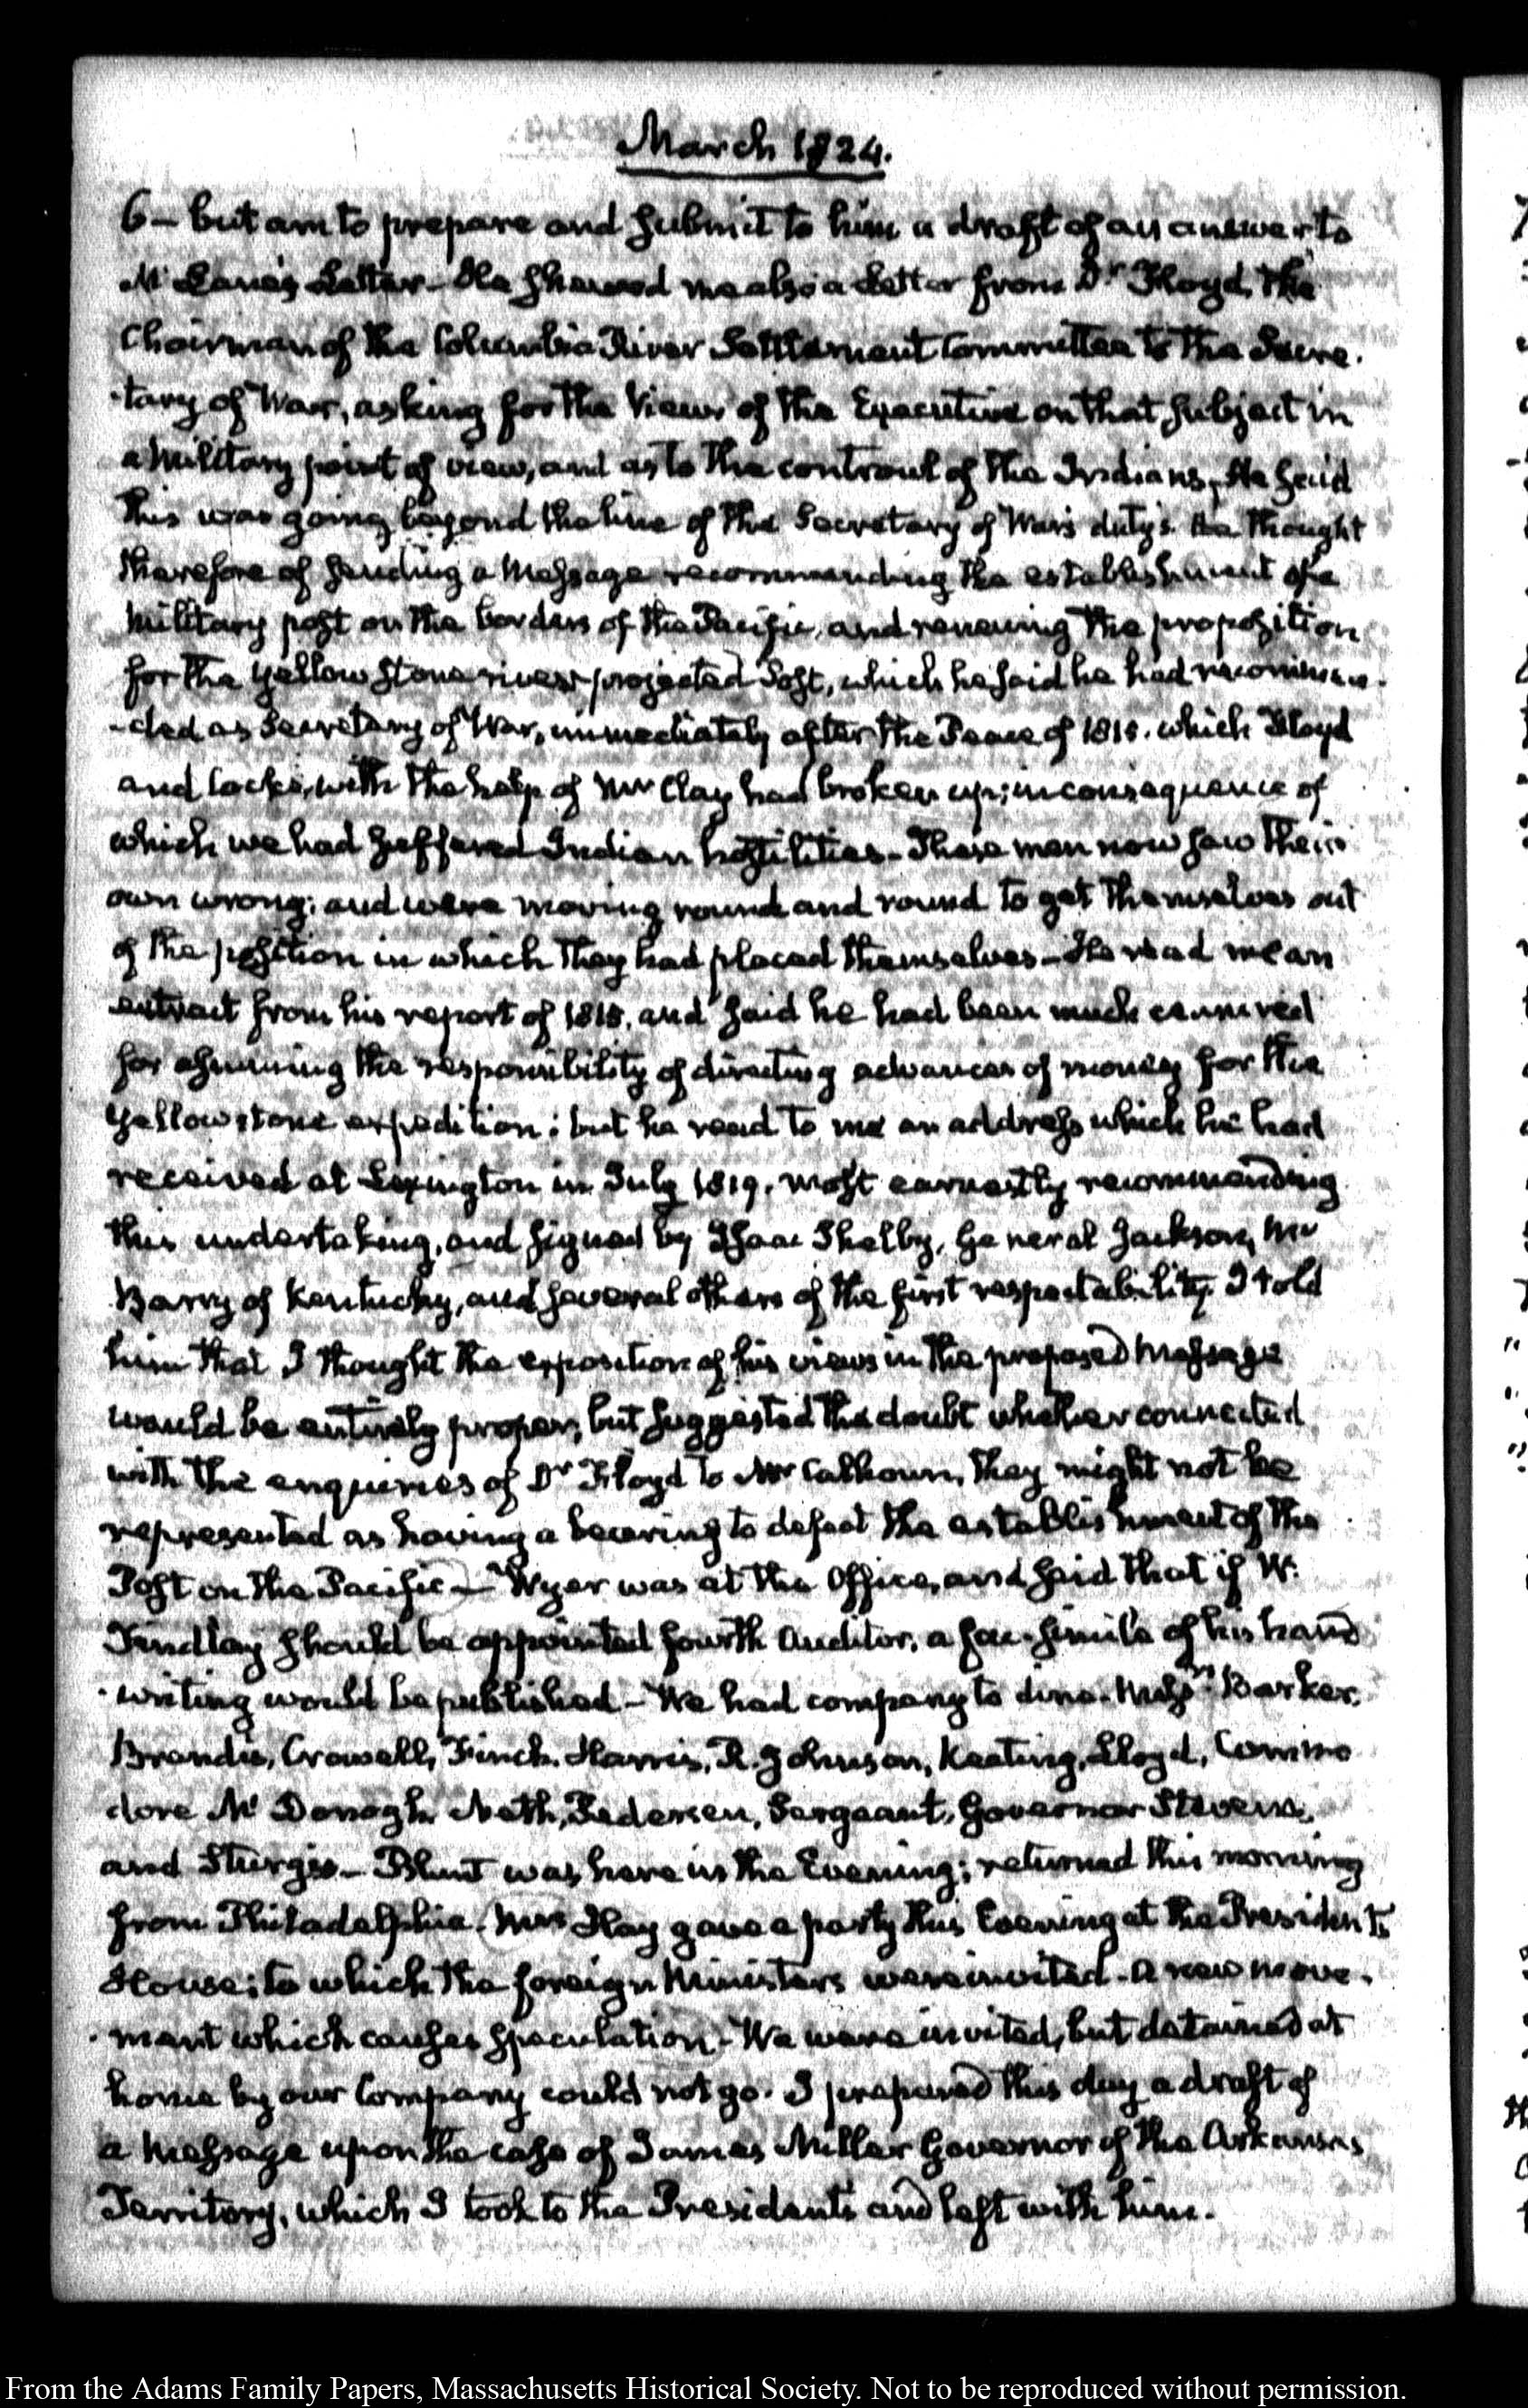 March 1824.
6 – but am to prepare and submit to him a draft of an answer to
Mc Lane's Letter – He shewed me also a Letter from Dr Floyd, the
Chairman of the Columbia River Settlement Committee to the Secre-
-tary of War, asking for the Views of the Executive on that subject in
a military point of view, and as to the controul of the Indians. He said
this was going beyond the line of the Secretary of War's duty's. He thought
therefore of sending a Message recommending the establishment of a
military post on the borders of the Pacific, and renewing the proposition
for the Yellow Stone river projected Post, which he said he had recommen-
-ded as Secretary of War, immediately after the Peace of 1815. which Floyd
and Cocke, with the help of Mr Clay had broken up; in consequence of
which we had suffered Indian hostilities – These men now saw their
own wrong; and were moving round and round to get themselves out
of the position in which they had placed themselves – He read me an
extract from his report of 1815. and said he had been much censured
for assuming the responsibility of directing advances of money for the
Yellowstone expedition; but he read to me an address which he had
received at Lexington in July 1819. most earnestly recommending
this undertaking, and signed by Isaac Shelby, General Jackson, Mr
Barry of Kentucky, and several others of the first respectability. I told
him that I thought the exposition of his views in the proposed Message
would be entirely proper; but suggested the doubt whether connected
with the enquiries of Dr Floyd to Mr Calhoun, they might not be
represented as having a bearing to defeat the establishment of the
Post on the Pacific – Wyer was at the Office, and said that if W.
Findlay should be appointed fourth Auditor, a fac-simile of his hand
-writing would be published – We had company to dine. Messrs Barker,
Brandis, Crowell, Finch, Harris, R. Johnson, Keating, Lloyd, Commo
dore Mc Donogh, Neth, Pedersen, Sergeant, Governor Stevens,
and Sturgis – Blunt was here in the Evening; returned this morning
from Philadelphia. Mrs Hay gave a party this Evening at the President's
House; to which the foreign Ministers were invited – a new move-
-ment which causes speculation – We were invited, but detained at
home by our Company could not go. I prepared this day a draft of
a Message upon the case of James Miller Governor of the Arkansas
Territory, which I took to the President's and left with him.
From the Adams Family Papers, Massachusetts Historical Society. Not to be reproduced without permission.